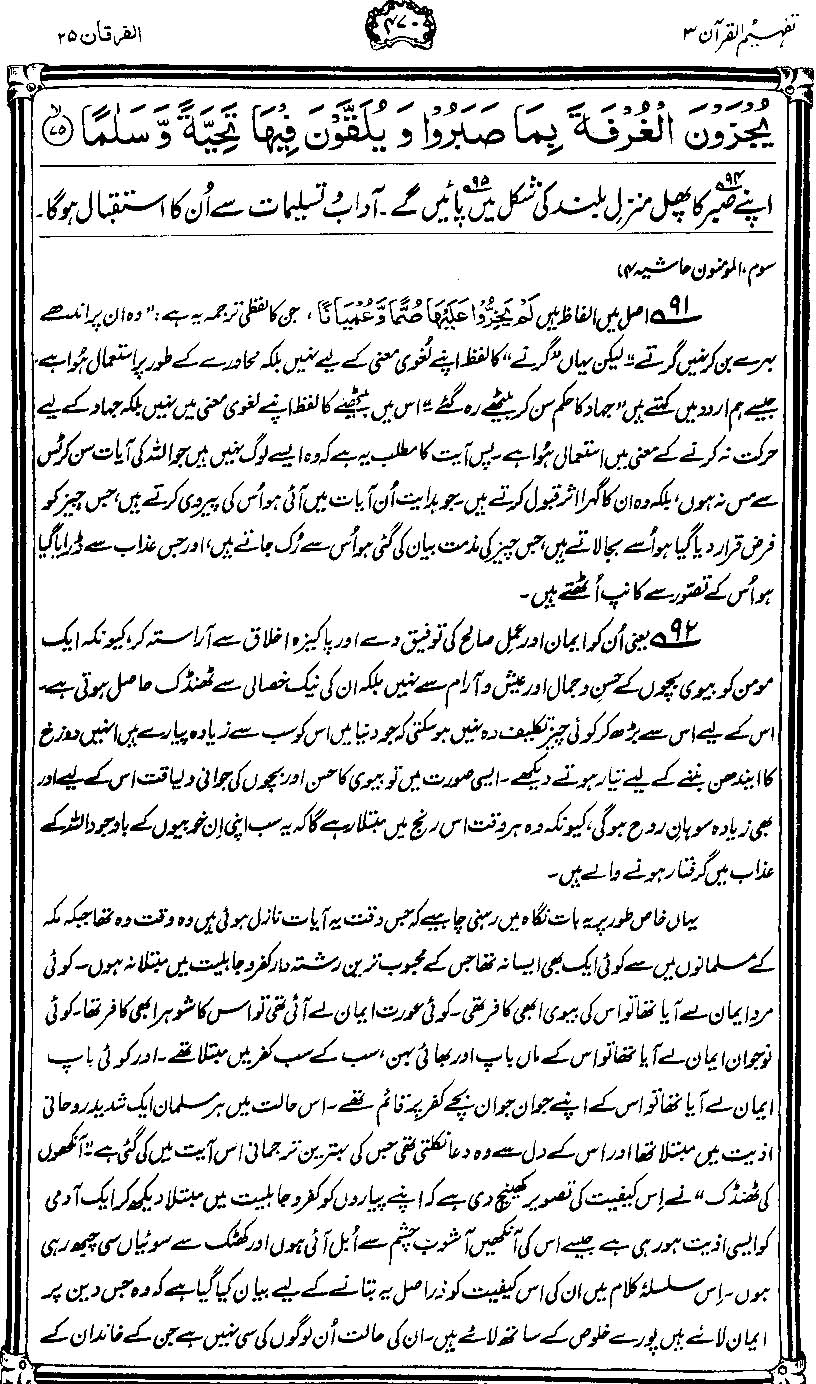 تفہیم القرآن ۳ ۴۷۰ الفرقان ۲۵
يُجْزَوْنَ الْغُرْفَةَ بِمَا صَبَرُوْا وَ يُلَقَّوْنَ فِيْهَا تَحِيَّةً وَّ سَلٰمًا ﴿۷۵﴾
اپنے صبر۹۴ کا پھل منزلِ بلند کی شکل میں۹۵ پائیں گے۔ آداب و تسلیمات سے اُن کا استقبال ہوگا۔
سوم، المؤمنون حاشیہ ۴)
۹۱ اصل میں الفاظ ہیں لَمْ يَخِرُّوْا عَلَيْهَا صُمًّا وَّ عُمْيَانًا ، جن کا لفظی ترجمہ یہ ہے : ”وہ ان پر اندھے
بہرے بن کر نہیں گرتے“۔ لیکن یہاں ”گرنے“ کا لفظ اپنے لُغوی معنی کے لیے نہیں بلکہ محاورے کے طور پر استعمال ہُوا ہے۔
جیسے ہم اردو میں کہتے ہیں ”جہاد کا حکم سن کر بیٹھے رہ گئے“۔ اس میں بیٹھنے کا لفظ اپنے لغوی معنی میں نہیں بلکہ جہاد کے لیے
حرکت نہ کرنے کے معنی میں استعمال ہُوا ہے۔ پس آیت کا مطلب یہ ہے کہ وہ ایسے لوگ نہیں ہیں جو اللہ کی آیات سن کر ٹس
سے مس نہ ہوں، بلکہ وہ ان کا گہرا اثر قبول کرتے ہیں۔ جو ہدایت اُن آیات میں آئی ہو اُس کی پیروی کرتے ہیں، جس چیز کو
فرض قرار دیا گیا ہو اُسے بجا لاتے ہیں، جس چیز کی مذمت بیان کی گئی ہو اُس سے رُک جاتے ہیں، اور جس عذاب سے ڈرایا گیا
ہو اُس کے تصّور سے کانپ اُٹھتے ہیں۔
۹۲ یعنی اُن کو ایمان اور عمل صالح کی توفیق دے اور پاکیزہ اخلاق سے آراستہ کر، کیونکہ ایک
مومن کو بیوی بچوں کے حسن و جمال اور عیش و آرام سے نہیں بلکہ ان کی نیک خصالی سے ٹھنڈک حاصل ہوتی ہے۔
اس کے لیے اس سے بڑھ کر کوئی چیز تکلیف دہ نہیں ہو سکتی کہ جو دنیا میں اس کو سب سے زیادہ پیارے ہیں انہیں دوزخ
کا ایندھن بننے کے لیے تیار ہوتے دیکھے۔ ایسی صورت میں تو بیوی کا حسن اور بچوں کی جوانی و لیاقت اس کے لیے اور
بھی زیادہ سوہانِ روح ہوگی، کیونکہ وہ ہر وقت اس رنج میں مبتلا رہے گا کہ یہ سب اپنی اِن خوبیوں کے باوجود اللہ کے
عذاب میں گرفتار ہونے والے ہیں۔
یہاں خاص طور پر یہ بات نگاہ میں رہنی چاہیے کہ جس وقت یہ آیات نازل ہوئی ہیں وہ وقت وہ تھا جبکہ مکہ
کے مسلمانوں میں سے کوئی ایک بھی ایسا نہ تھا جس کے محبوب ترین رشتہ دار کفر و جاہلیت میں مبتلا نہ ہوں۔ کوئی
مرد ایمان لے آیا تھا تو اس کی بیوی ابھی کافر تھی۔ کوئی عورت ایمان لے آئی تھی تو اس کا شوہر ابھی کافر تھا۔ کوئی
نوجوان ایمان لے آیا تھا تو اس کے ماں باپ اور بھائی بہن، سب کے سب کفر میں مبتلا تھے۔ اور کوئی باپ
ایمان لے آیا تھا تو اس کے اپنے جوان جوان بچے کفر پر قائم تھے۔ اس حالت میں ہر مسلمان ایک شدید روحانی
اذیت میں مبتلا تھا اور اس کے دل سے وہ دعا نکلتی تھی جس کی بہترین ترجمانی اس آیت میں کی گئی ہے۔ ”آنکھوں
کی ٹھنڈک“ نے اِس کیفیت کی تصویر کھینچ دی ہے کہ اپنے پیاروں کو کفر و جاہلیت میں مبتلا دیکھ کر ایک آدمی
کو ایسی اذیت ہو رہی ہے جیسے اس کی آنکھیں آشوبِ چشم سے اُبل آئی ہوں اور کھٹک سے سوئیاں سی چبھ رہی
ہوں۔ اِس سلسلۂ کلام میں ان کی اس کیفیت کو دراصل یہ بتانے کے لیے بیان کیا گیا ہے کہ وہ جس دین پر
ایمان لائے ہیں پورے خلوص کے ساتھ لائے ہیں۔ ان کی حالت اُن لوگوں کی سی نہیں ہے جن کے خاندان کے